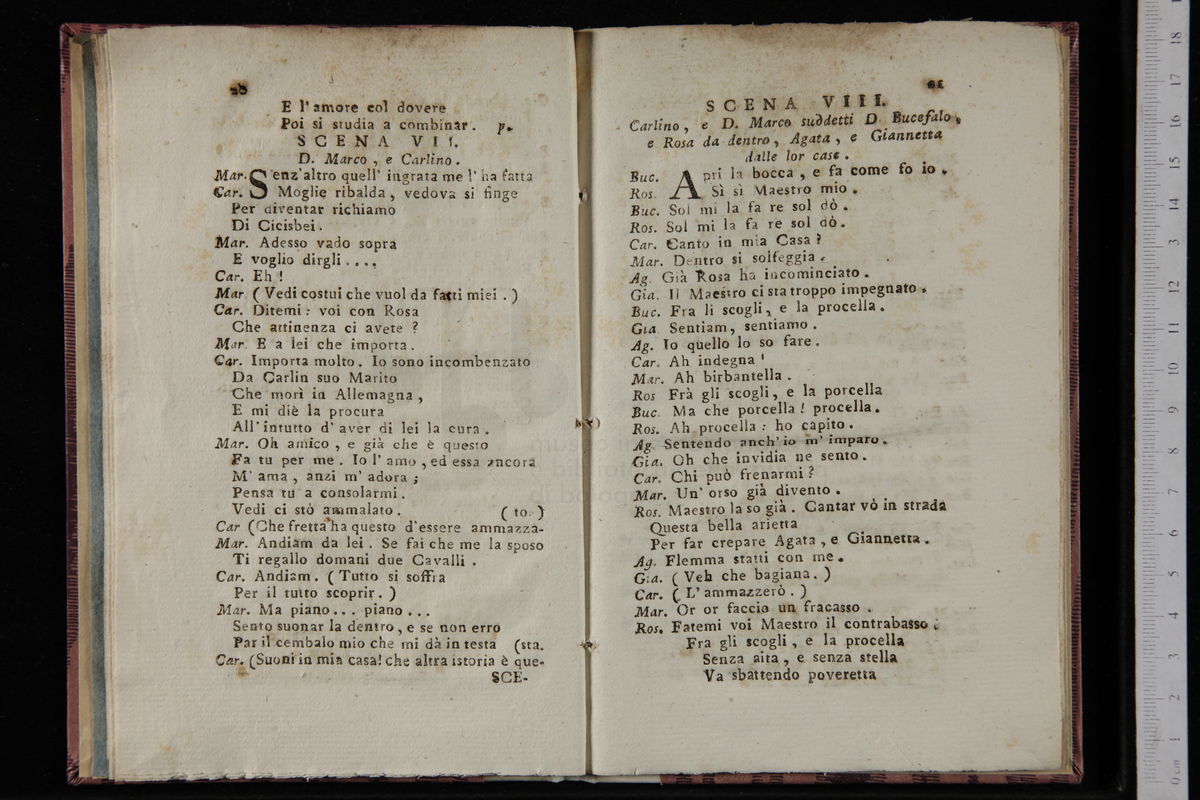 28
E l'amore col dovere
Poi si studia a combinar. p.
SCENA VII.
D. Marco, e Carlino.
Mar. Senz'altro quell' ingrata me l' ha fatta
Car. Moglie ribalda, vedova si finge
Per diventar richiamo
Di Cicisbei.
Mar. Adesso vado sopra
E voglio dirgli....
Car. Eh!
Mar. (Vedi costui che vuol da fatti miei.)
Car. Ditemi: voi con Rosa
Che attinenza ci avete?
Mar. E a lei che importa.
Car. Importa molto. Io sono incombenzato
Da Carlin suo Marito
Che morì in Allemagna,
E mi diè la procura
All'intutto d'aver di lei la cura.
Mar. Oh amico, e già che è questo
Fa tu per me. Io l'amo, ed essa ancora
M' ama, anzi m' adora;
Pensa tu a consolarmi.
Vedi ci stò ammalato. (to.)
Car (Che fretta ha questo d'essere ammazza-
Mar. Andiam da lei. Se fai che me la sposo
Ti regallo domani due Cavalli.
Car. Andiam. (Tutto si soffra
Per il tutto scoprir.)
Mar. Ma piano... piano...
Sento suonar la dentro, e se non erro
Par il cembalo mio che mi dà in testa (sta.
Car. (Suoni in mia casa! che altra istoria è que-
SCE-
SCENA VIII.
Carlino, e D. Marco suddetti D. Bucefalo,
e Rosa da dentro, Agata, e Giannetta
dalle lor case.
Buc. Apri la bocca, e fa come fo io.
Ros. Sì sì Maestro mio.
Buc. Sol mi la fa re sol dò.
Ros. Sol mi la fa re sol dò.
Car. Canto in mia Casa?
Mar. Dentro si solfeggia.
Ag. Già Rosa ha incominciato.
Gia. Il Maestro ci sta troppo impegnato.
Buc. Fra li scogli, e la procella.
Gia Sentiam, sentiamo.
Ag. Io quello lo so fare.
Car. Ah indegna!
Mar. Ah birbantella.
Ros Frà gli scogli, e la porcella
Buc. Ma che porcella! procella.
Ros. Ah procella: ho capito.
Ag. Sentendo anch'io m' imparo.
Gia. Oh che invidia ne sento.
Car. Chi può frenarmi?
Mar. Un' orso già divento.
Ros. Maestro la so già. Cantar vò in strada
Questa bella arietta
Per far crepare Agata, e Giannetta.
Ag. Flemma statti con me.
Gia. (Veh che bagiana.)
Car. (L' ammazzerò.)
Mar. Or or faccio un fracasso.
Ros. Fatemi voi Maestro il contrabasso.
Fra gli scogli, e la procella
Senza aita, e senza stella
Va sbattendo poveretta